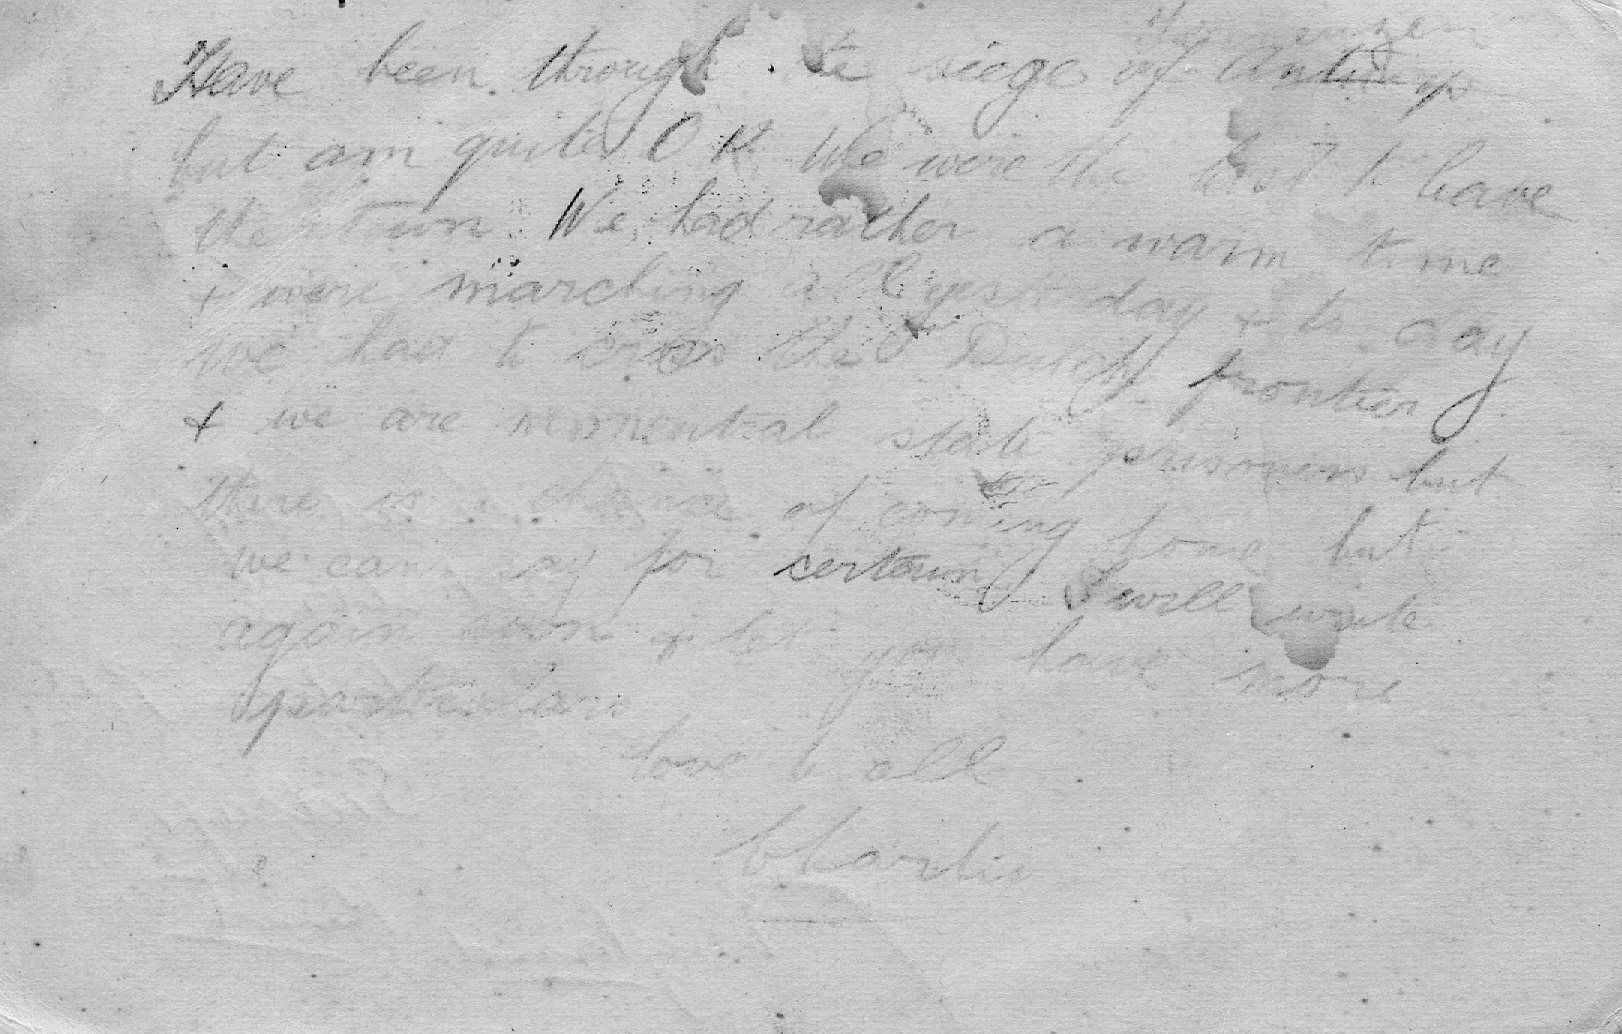 Have been through the siege of Antwerp
but am quite OK We were the last to leave
the town We had rather a warm time
+ were marching all yesterday + to day
we had to cross the Dutch frontier
+ we are now neutral state prisoners but
there is a chance of coming home but
we cant say for certain I will write
again soon + let you have more
particulars
love to all
Charlie